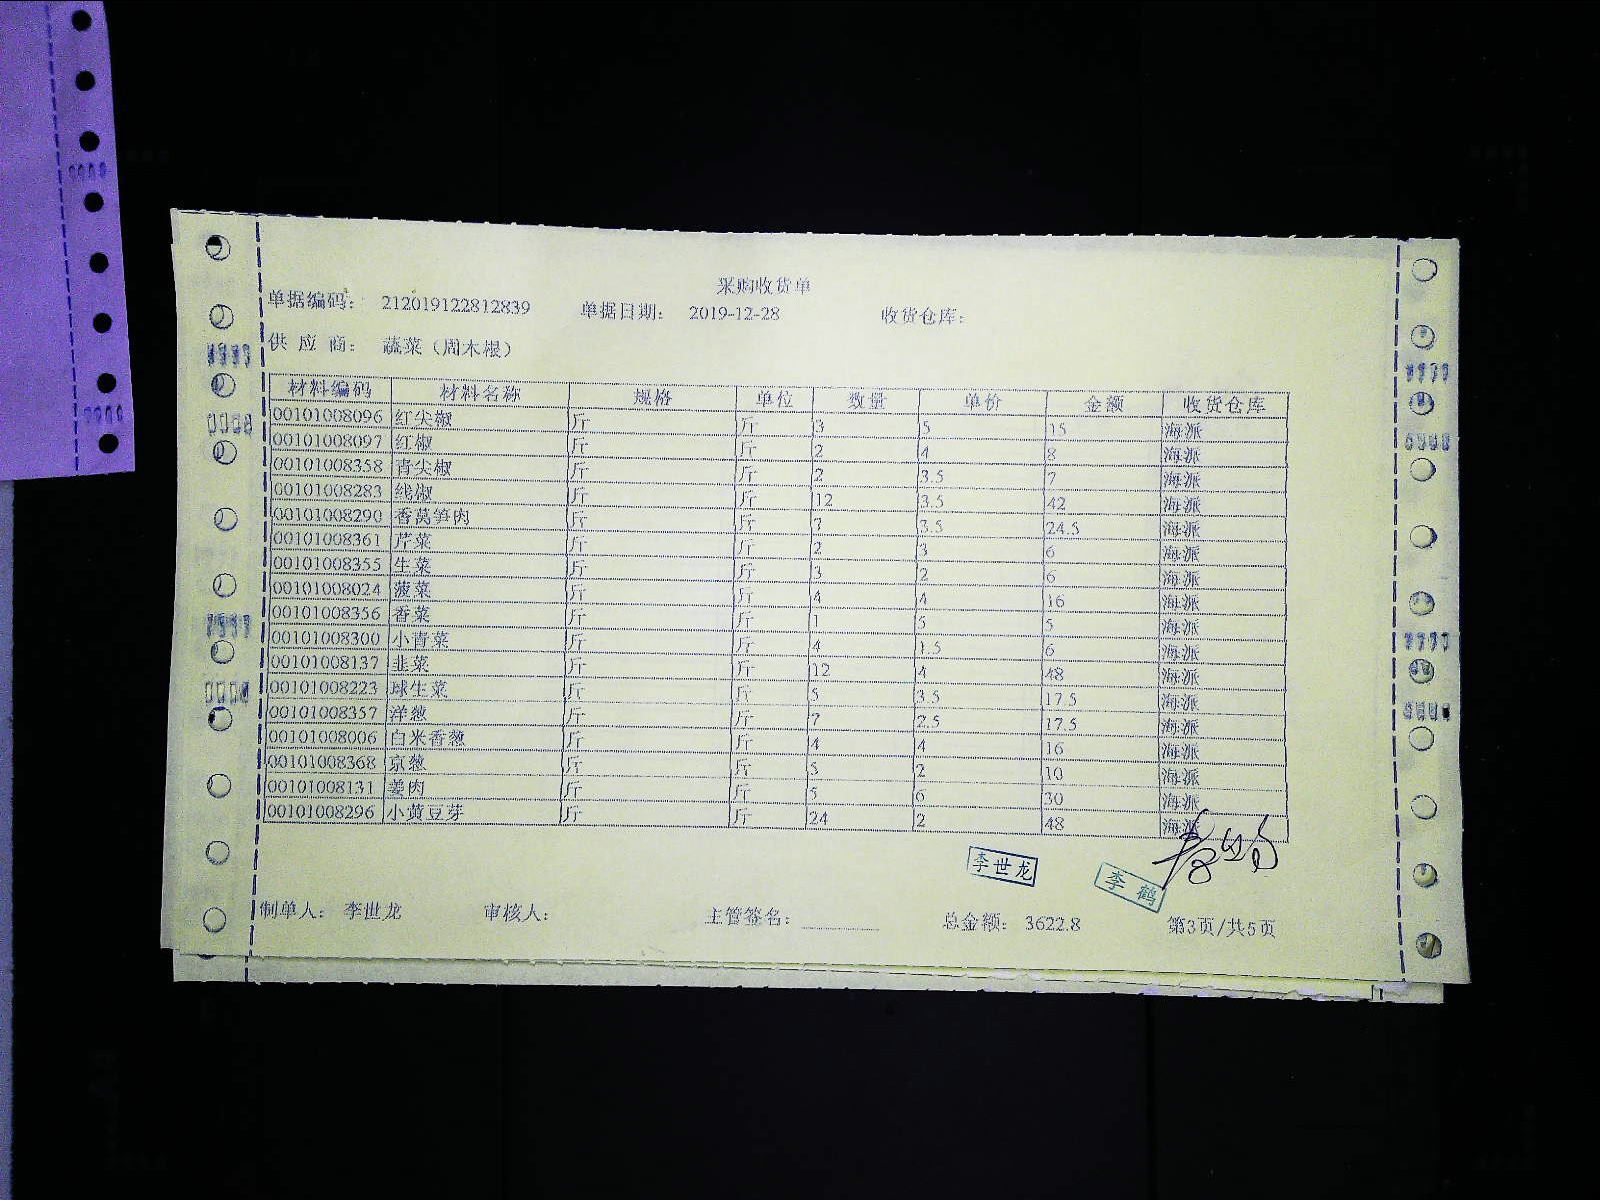 采购收货单
单据编码: 212019122812839 单据日期: 2019-12-28 收货仓库:
供应商: 蔬菜(周木根)
材料编码 材料名称 规格 单位 数量 单价 金额 收货仓库
00101008096 红尖椒 斤 斤 3 5 15 海派
00101008097 红椒 斤 斤 2 4 8 海派
00101008358 青尖椒 斤 斤 2 3.5 7 海派
00101008283 线椒 斤 斤 12 3.5 42 海派
00101008290 香莴笋肉 斤 斤 7 3.5 24.5 海派
00101008361 芹菜 斤 斤 2 3 6 海派
00101008355 生菜 斤 斤 3 2 6 海派
00101008024 菠菜 斤 斤 4 4 16 海派
00101008356 香菜 斤 斤 1 5 5 海派
00101008300 小青菜 斤 斤 4 1.5 6 海派
00101008137 韭菜 斤 斤 12 4 48 海派
00101008223 球生菜 斤 斤 5 3.5 17.5 海派
00101008357 洋葱 斤 斤 7 2.5 17.5 海派
00101008006 白米香葱 斤 斤 4 4 16 海派
00101008368 京葱 斤 斤 5 2 10 海派
00101008131 姜肉 斤 斤 5 6 30 海派
00101008296 小黄豆芽 斤 斤 24 2 48 海派
李世龙 李鹤
制单人: 李世龙 审核人: 主管签名: 总金额: 3622.8 第3页/共5页